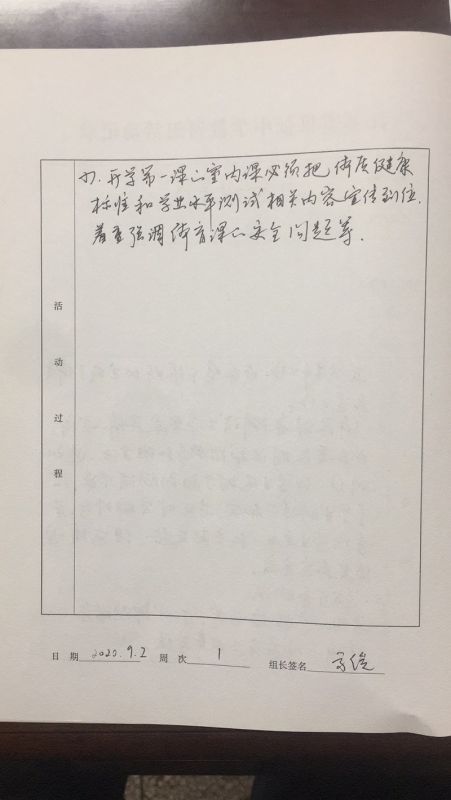 力.开学第一课上室内课必须把体质健康
标准和学业水平测试相关内容宣传到位.
着重强调体育课上安全问题等.
活动过程
日 期 2020.9.2 周 次 1 组长签名